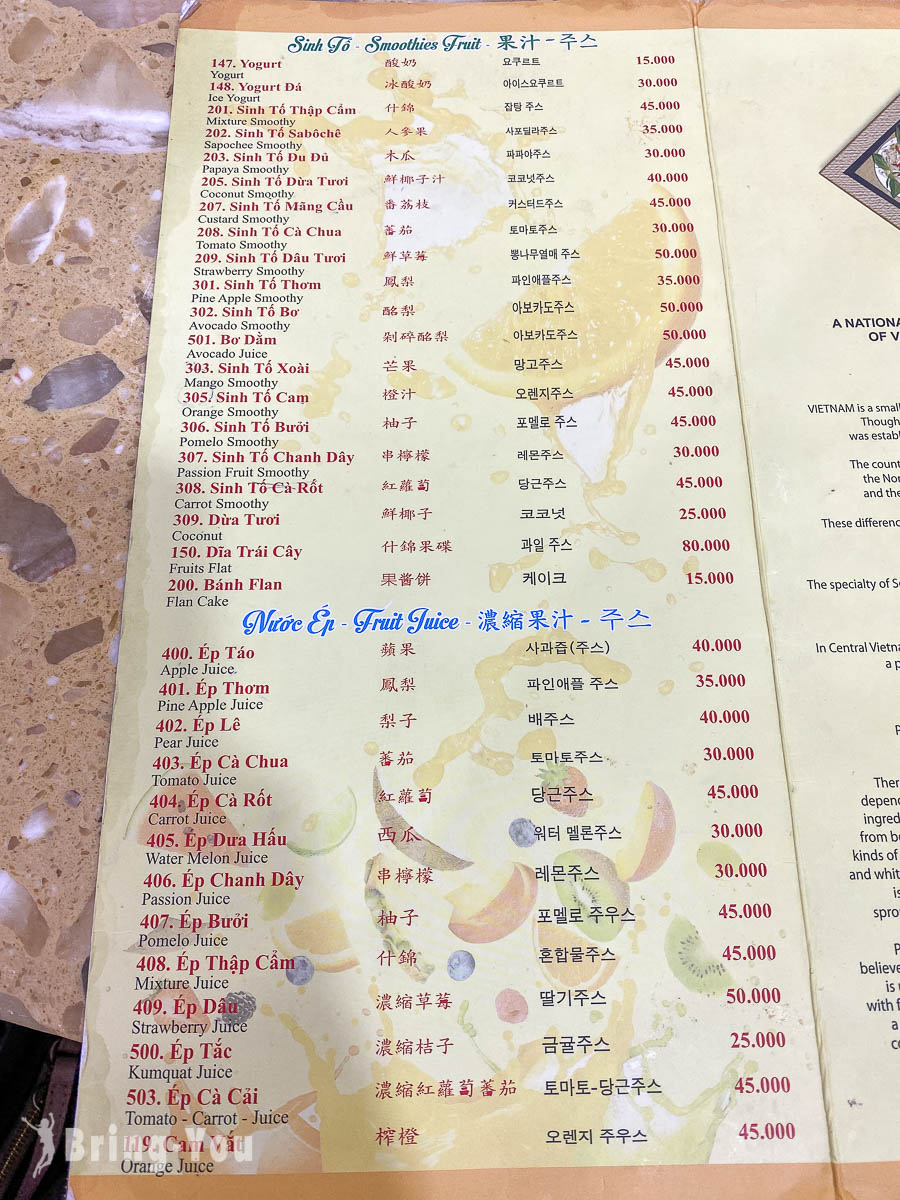 Sinh Tố - Smoothies Fruit - 果汁 - 주스
147. Yogurt 酸奶 요쿠르트 15.000
Yogurt
148. Yogurt Đá 冰酸奶 아이스요쿠르트 30.000
Ice Yogurt
201. Sinh Tố Thập Cẩm 什錦 잡탕 주스 45.000
Mixture Smoothy
202. Sinh Tố Sabôchê 人參果 사포딜라주스 35.000
Sapochee Smoothy
203. Sinh Tố Đu Đủ 木瓜 파파야주스 30.000
Papaya Smoothy
205. Sinh Tố Dừa Tươi 鮮椰子汁 코코넛주스 40.000
Coconut Smoothy
207. Sinh Tố Mãng Cầu 番荔枝 커스터드주스 45.000
Custard Smoothy
208. Sinh Tố Cà Chua 蕃茄 토마토주스 30.000
Tomato Smoothy
209. Sinh Tố Dâu Tươi 鮮草莓 뽕나무열매 주스 50.000
Strawberry Smoothy
301. Sinh Tố Thơm 鳳梨 파인애플주스 35.000
Pine Apple Smoothy
302. Sinh Tố Bơ 酪梨 아보카도주스 50.000
Avocado Smoothy
501. Bơ Dằm 剁碎酪梨 아보카도주스 50.000
Avocado Juice
303. Sinh Tố Xoài 芒果 망고주스 45.000
Mango Smoothy
305. Sinh Tố Cam 橙汁 오렌지주스 45.000
Orange Smoothy
306. Sinh Tố Bưởi 柚子 포멜로 주스 45.000
Pomelo Smoothy
307. Sinh Tố Chanh Dây 串檸檬 레몬주스 30.000
Passion Fruit Smoothy
308. Sinh Tố Cà Rốt 紅蘿蔔 당근주스 45.000
Carrot Smoothy
309. Dừa Tươi 鮮椰子 코코넛 25.000
Coconut
150. Dĩa Trái Cây 什錦果碟 과일 주스 80.000
Fruits Flat
200. Bánh Flan 果醬餅 케이크 15.000
Flan Cake
Nước Ép - Fruit Juice - 濃縮果汁 - 주스
400. Ép Táo 蘋果 사과즙(주스) 40.000
Apple Juice
401. Ép Thơm 鳳梨 파인애플 주스 35.000
Pine Apple Juice
402. Ép Lê 梨子 배주스 40.000
Pear Juice
403. Ép Cà Chua 蕃茄 토마토주스 30.000
Tomato Juice
404. Ép Cà Rốt 紅蘿蔔 당근주스 45.000
Carrot Juice
405. Ép Dưa Hấu 西瓜 워터 멜론주스 30.000
Water Melon Juice
406. Ép Chanh Dây 串檸檬 레몬주스 30.000
Passion Juice
407. Ép Bưởi 柚子 포멜로 주우스 45.000
Pomelo Juice
408. Ép Thập Cẩm 什錦 혼합물주스 45.000
Mixture Juice
409. Ép Dâu 濃縮草莓 딸기주스 50.000
Strawberry Juice
500. Ép Tắc 濃縮桔子 금귤주스 25.000
Kumquat Juice
503. Ép Cà Cải 濃縮紅蘿蔔蕃茄 토마토-당근주스 45.000
Tomato - Carrot - Juice
119. Cam Vắt 榨橙 오렌지 주우스 45.000
Orange Juice
Bring You
A NATIONA
OF V
VIETNAM is a smal
Though
was establ
The count
the Nor
and the
These differenc
The specialty of S
In Central Vietna
a p
P
Ther
depend
ingred
from be
kinds of
and whit
is
spro
P
believe
is
with f
a
co